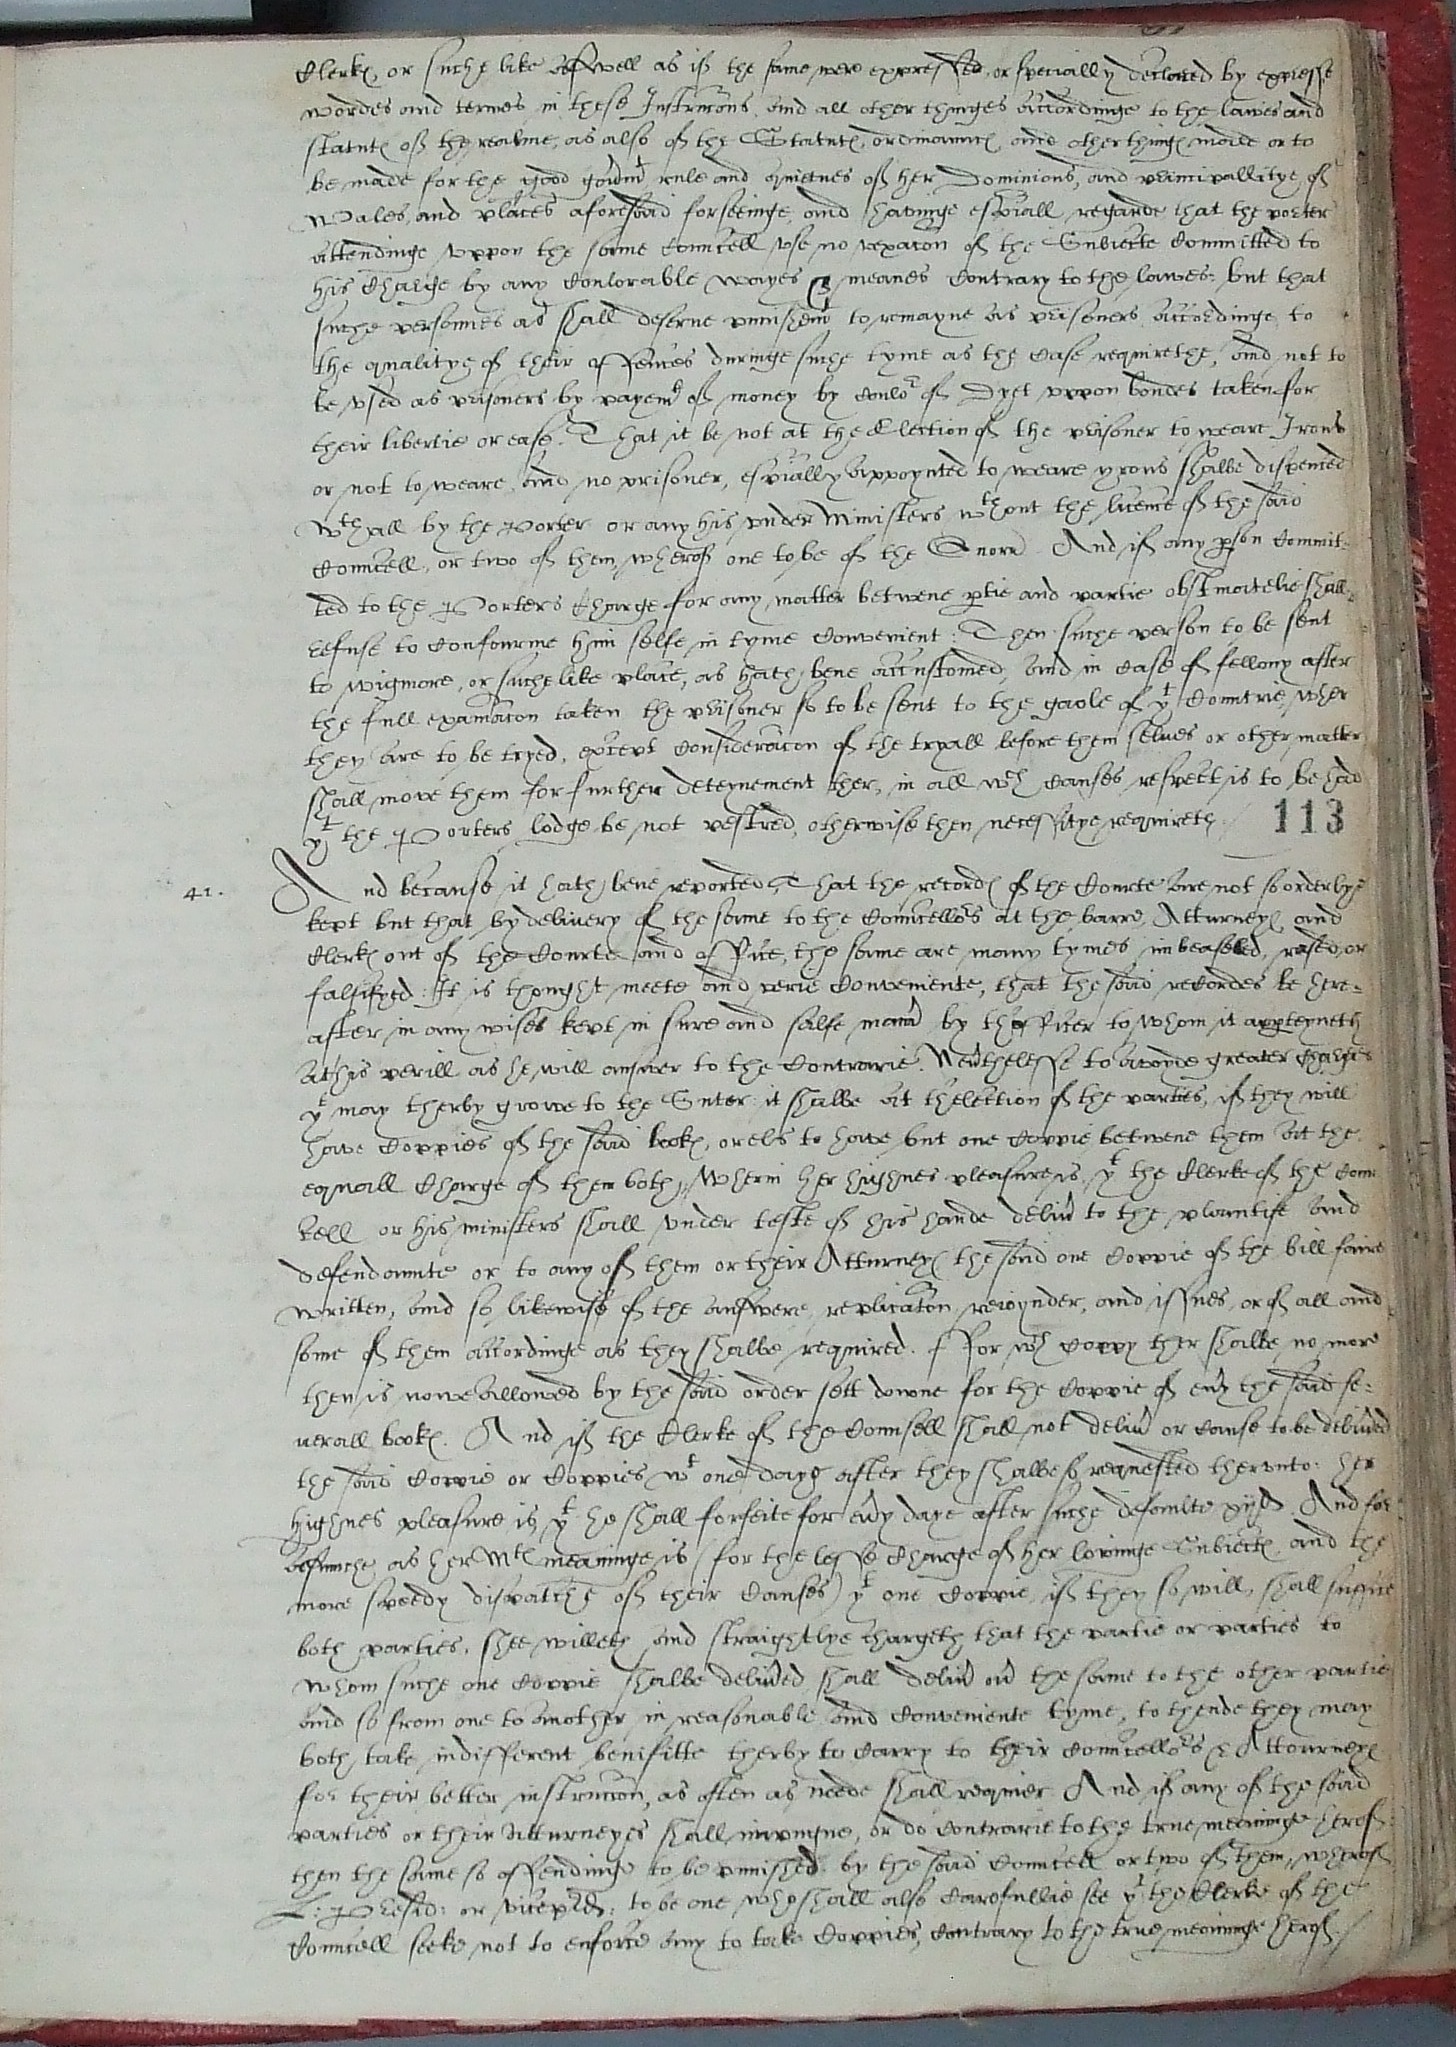 Clerk(es) or suche like aswell as if the same were expressed, or specially declared by expresse
wordes and termes in these Instruccons, and all other thinges accordinge to the lawes and
statut(es) of the realme, as also of the Statut(es), ordinaunc(es) and other thing(es) made or to
be made for the good gou'nmt rule and quietnes of her Dominions, and principallitye of
Wales, and places aforesaid forseeinge, and havinge especiall regarde that the porter
attendinge vppon the same councell vse no vexacon of the Subiecte Committed to
his charge by any Coulorable wayes & meanes Contrary to the lawes: but that
suche personnes as shall deserue punishemt to remayne as prisoners accordinge to
the qualitye of their offences duringe suche tyme as the Case requirethe, and not to
be vsed as prisoners by payemt of money by coulor of Dyet vppon bondes taken for
their libertie or ease. That it be not at the Election of the prisoner to weare Irons
or not to weare, and no prisoner, especially appoynted to weare yrons shalbe dispenced
wthall by the Porter or any his vnder Ministers wthout the licence of the said
Councell, or two of them, wherof one to be of the Quorum. And if any pson Commit-
ted to the Porters Charge for any matter betwene ptie and partie obstinatelie shall
refuse to Confourme him selfe in tyme Convenient: Then suche person to be sent
to Wigmore, or suche like place, as hath bene accustomed, and in Case of fellony after
the full examacon taken the prisoner so to be sent to the gaole of yt Countrie, wher
they are to be tryed, except Consideracon of the tryall before them selues or other matter
shall move them for further deteynement ther, in all wch Causes respect is to be had
yt the Porters lodge be not pestred, otherwise then necessitye requireth.
113
41. And because it hath bene reported, That the record(es) of the Courte are not so orderlye
kept but that by delivery of the same to the Councellors at the barre, Atturney(es) and
Clerk(es) out of the Courte and office, the same are many tymes imbeaseled, rased, or
falsifyed: It is thought meete and verie Conveniente, that the said recordes be here-
after in any wises kept in sure and salfe mann' by thofficer to whom it apperteyneth
at his perill as he will answer to the Contrarie. Neu'thelesse to avoyde greater charges
yt may therby growe to the Suter it shalbe at thelection of the parties, if they will
have Coppies of the said book(es), or els to have but one Coppie betwene them at the
equall Charge of them both, Wherin her highnes pleasure is, yt the Clerke of the Coun
cell or his ministers shall vnder teste of his hande deliu' to the plaintife and
defendaunte or to any of them or their Atturney(es) the said one Coppie of the bill faire
written, and so likewise of the answere, replicacon, reioynder, and issues, or of all and
some of them accordinge as they shalbe required. ffor wch Coppy ther shalbe no more
then is nowe allowed by the said order sett downe for the Coppie of eu'y the said se-
uerall book(es). And if the Clerke of the Counsell shall not deliu' or Cause to be deliu'ed
the said Coppie or Coppies wt one daye after they shalbe so requested thervnto: her
highnes pleasure is yt he shall forfeite for eu'y daye after suche defaulte xijd. And for
asmuche as her Mts meaninge is (for the lesse Charge of her lovinge Subiect(es) and the
more speedy dispatche of their Causes) yt one Coppie, if they so will, shall suffice
both parties, shee willeth and straightlye chargeth that the partie or parties to
whom suche one Coppie shalbe deliu'ed shall deliu' ou' the same to the other partie
and so from one to another in reasonable and Conveniente tyme, to thende they may
both take indifferent benifitte therby to Carry to their Councellors & Attourney(es)
for their better instruccon, as often as neede shall requier. And if any of the said
parties or their Atturneyes shall impugne, or do Contrarie to the true meaninge herof:
then the same so offendinge to be punished by the said Councell or two of them, wherof
L: Presid: or vicepresid: to be one who shall also Carefullie see yt the Clerke of the
Councell seeke not to enforce any to take Coppies, Contrary to the true meaninge herof./